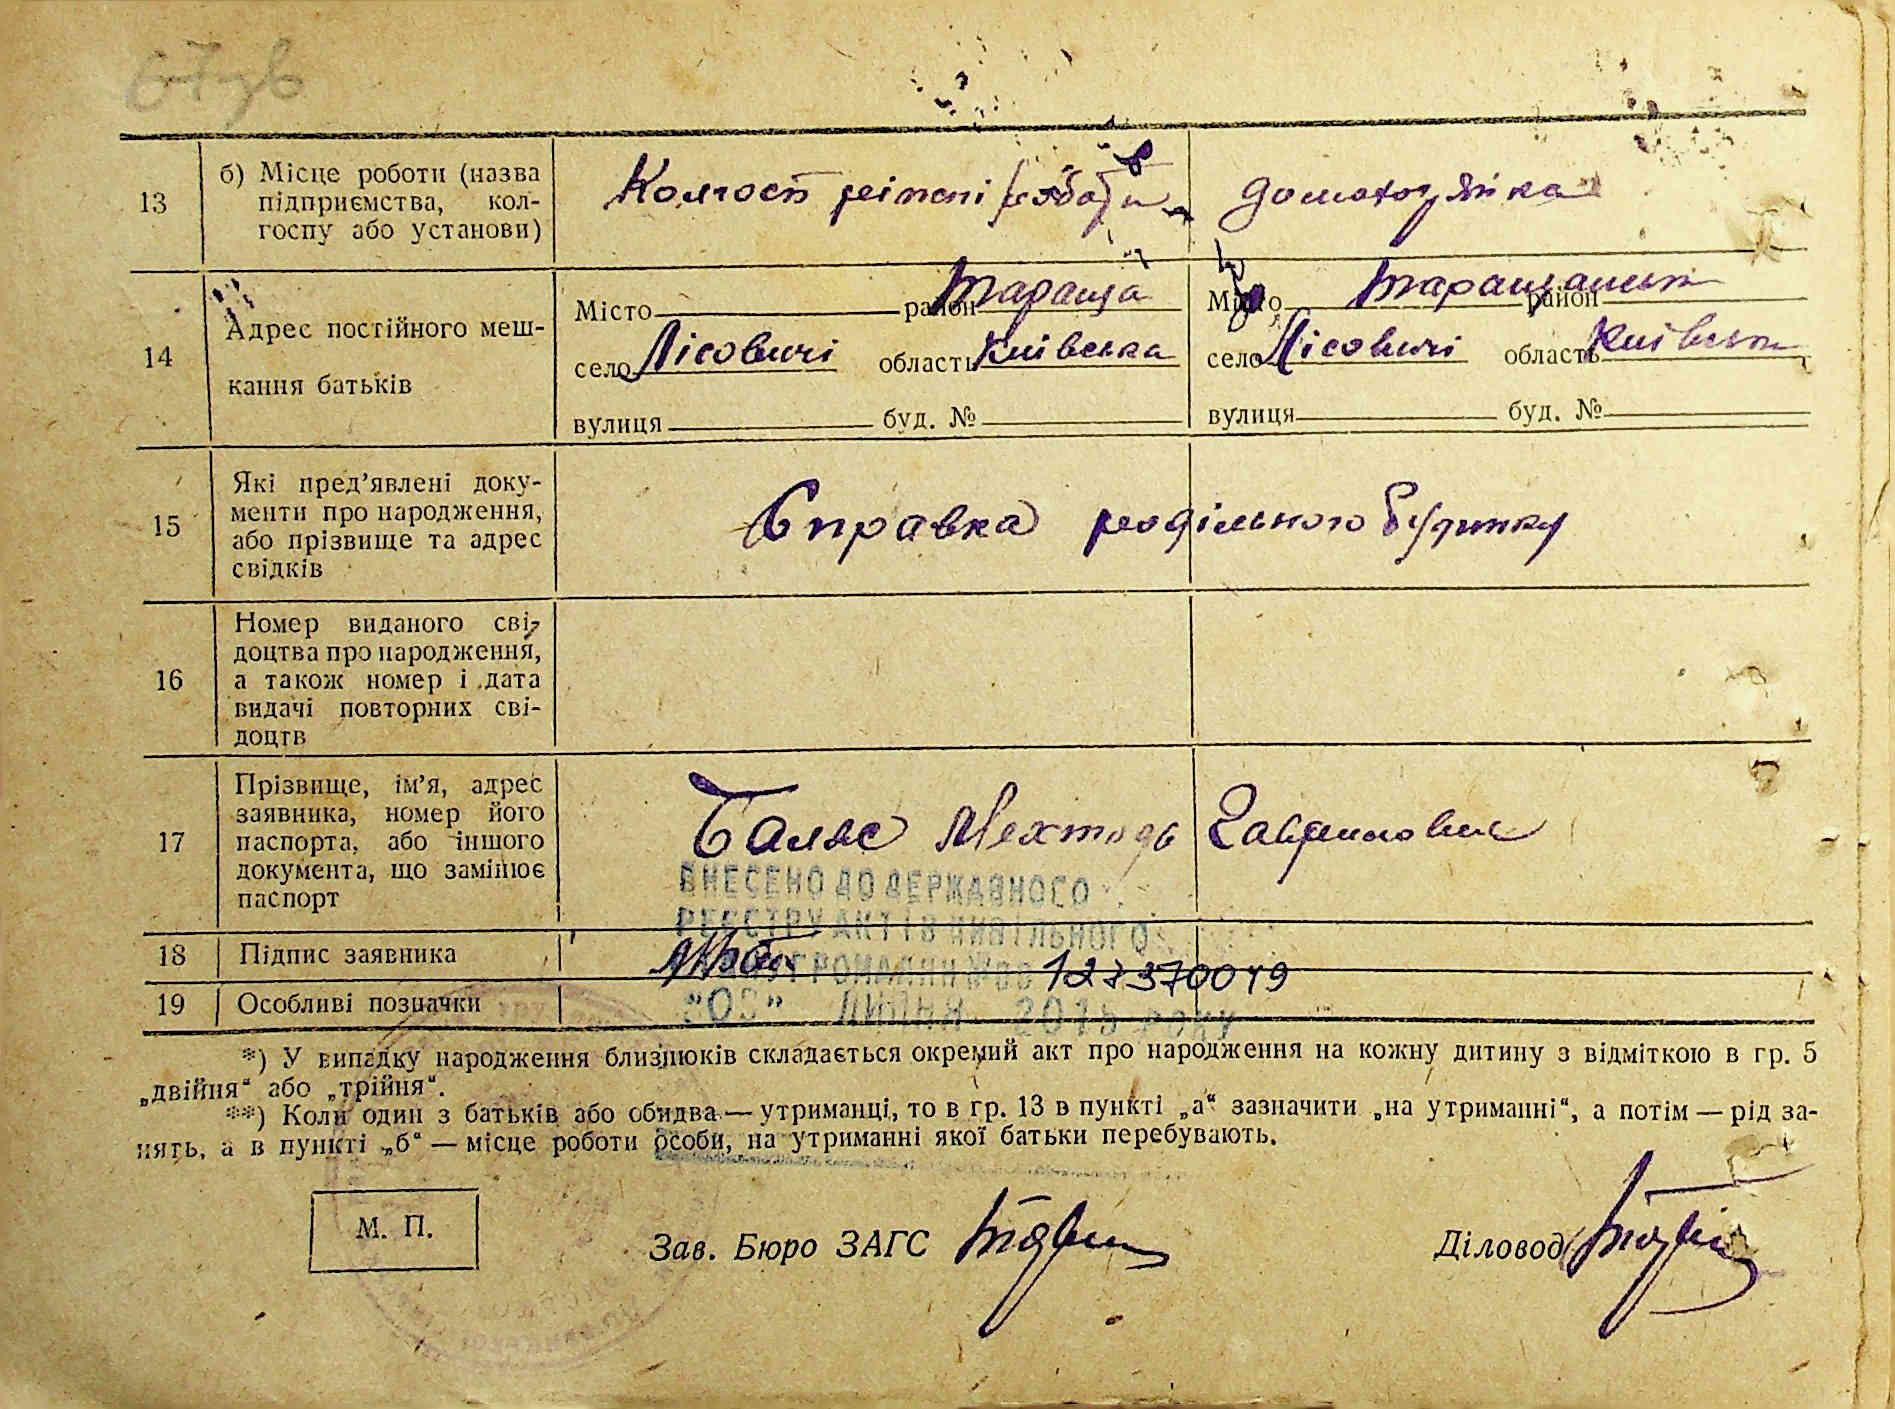 67 зв
13 б) Місце роботи (назва підприємства, колгоспу або установи)
Колгосп рільні роботи
домохозяйка
14 Адрес постійного мешкання батьків
Місто район Тараща
село Лісовичі область Київська
вулиця буд. №
Місто район Таращанськ
село Лісовичі область Київськ
вулиця буд. №
15 Які пред’явлені документи про народження, або прізвище та адрес свідків
Справка родільного будинку
16 Номер виданого свідоцтва про народження, а також номер і дата видачі повторних свідоцтв
17 Прізвище, ім’я, адрес заявника, номер його паспорта, або іншого документа, що замінює паспорт
ВНЕСЕНО ДО ДЕРЖАВНОГО
РЕЄСТРУ АКТІВ ЦИВІЛЬНОГО
ГРОМАДЯН №00
ЛИПНЯ РОКУ
18 Підпис заявника
19 Особливі позначки
*) У випадку народження близнюків складається окремий акт про народження на кожну дитину з відміткою в гр. 5
„двійня“ або „трійня“.
**) Коли один з батьків або обидва — утриманці, то в гр. 13 в пункті „а“ зазначити „на утриманні“, а потім — рід за-
нять, а в пункті „б“ — місце роботи особи, на утриманні якої батьки перебувають.
М. П.
Зав. Бюро ЗАГС
Діловод